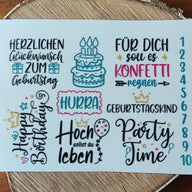 HERZLICHEN
Glückwunsch
ZUM
Geburtstag
FÜR DICH
soll es
KONFETTI
regnen
HURRA
GEBURTSTAGSKIND
Happy
Birthday
Hoch
sollst du
leben
Party
Time
1
2
3
4
5
6
7
8
9
10